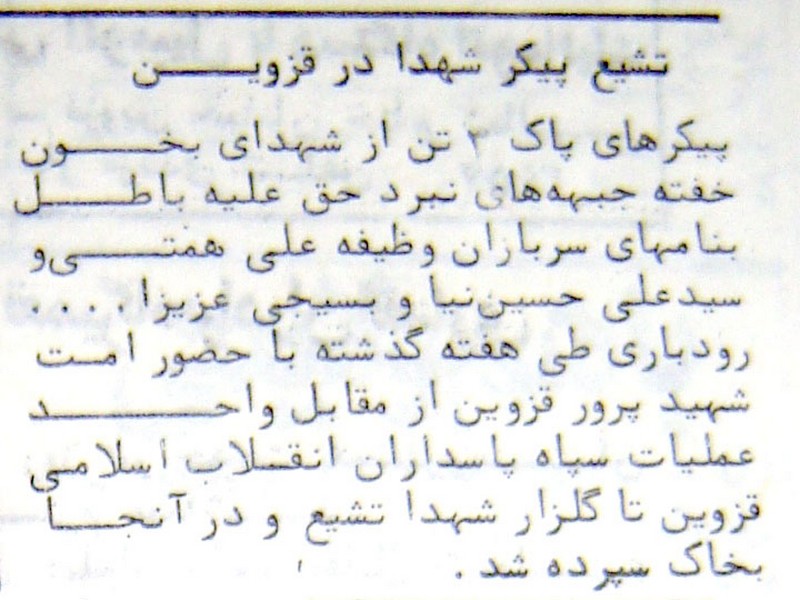 تشیع پیکر شهدا در قزویــــن
پیکرهای پاک ۳ تن از شهدای بخـــون
خفته جبهه‌های نبرد حق علیه باطــل
بنامهای سربازان وظیفه علی همتـــی‌و
سیدعلی حسین‌نیا و بسیجی عزیزا . . . .
رودباری طی هفته گذشته با حضور امت
شهید پرور قزوین از مقابل واحـــــد
عملیات سپاه پاسداران انقـلاب اسلامی
قزوین تا گلزار شهدا تشیع و در آنجــا
بخاک سپرده شد .